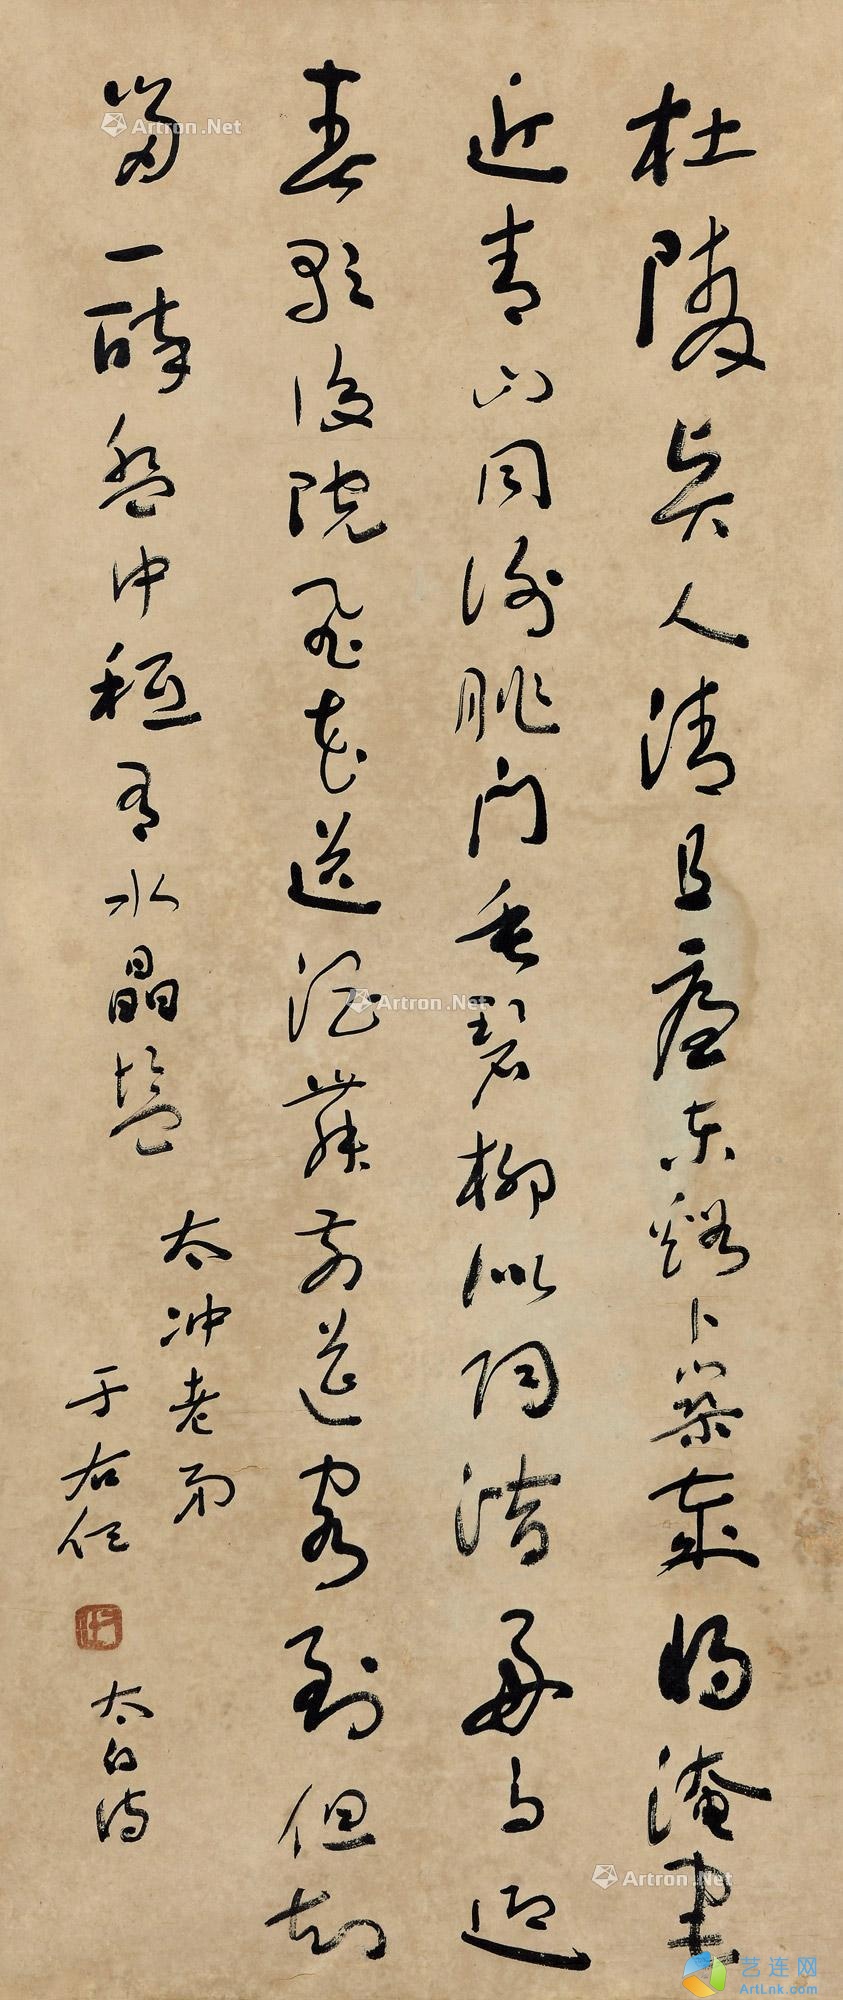 杜陵賢人清且廉東谿卜築歲將淹宅
近青山同謝朓門垂碧柳似陶潛好鳥迎
春歌後院飛花送酒舞前筵客到但知
留一醉盤中秪有水晶鹽
太冲老弟
于右任
太白詩
Artron.Net
Artron.Net
Artron.Net
艺连网
ArtLnk.com